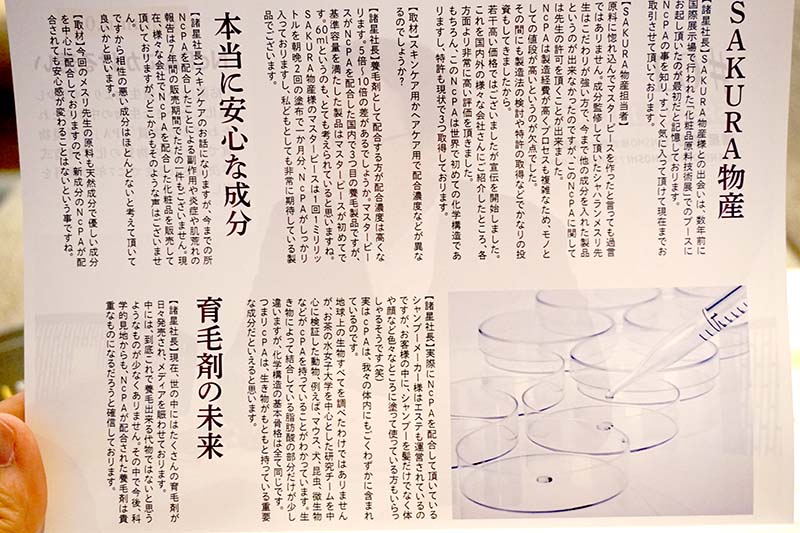 SAKURA物産
【諸星社長】SAKURA物産様との出会いは、数年前に
国際展示場で行われた「化粧品原料技術展」でのブースに
お起し頂いたのが最初だと記憶しております。
NcPAの事を知り、すごく気に入って頂けて現在までお
取引させて頂いております。
【SAKURA物産担当者】
原料に惚れ込んでマスターピースを作ったと言っても過言
ではありません。成分監修して頂いたジャバランメスリ先
生はこだわりが強い方で、今まで他の成分を入れた製品
というのが出来なかったのですが、このNcPAに関して
は先生の許可を頂くことが出来ました。
NcPAは製造経費が高くプロセスも複雑なため、モノと
しての値段が高いというのが欠点でした。
その間にも製造法の検討や特許の取得などでかなりの投
資もしてきましたから。
若干高い価格ではございましたが宣伝を開始しました。
これを国内外の様々な会社さんにご紹介したところ、各
方面より非常に高い評価を頂きました。
もちろん、このNcPAは世界で初めての化学構造であ
りますし、特許も現状で3つ取得しております。
【取材】スキンケア用かヘアケア用で配合濃度などが異な
るのでしょうか?
【諸星社長】養毛剤として配合する方が配合濃度は高くな
ります。5倍~10倍の差があるでしょうか。マスターピー
スがNcPAを配合した国内で3つ目の養毛製品ですが、
基準容量を満たした製品はマスターピースが初めてで
す。60mlというのも、とても考えられていると思いますね。
SAKURA物産様のマスターピースは1回1ミリリッ
トルを朝晩2回の塗布で一か月分、NcPAがしっかり
入っておりますし、私どもとしても非常に期待している製
品でございます。
本当に安心な成分
【諸星社長】スキンケアのお話になりますが、今までの所
NcPAを配合したことによる副作用や炎症や肌荒れの
報告は7年間の販売期間でただの一件もございません。現
在、様々な会社でNcPAを配合した化粧品を販売して
頂いておりますが、どこからもそのような声はございませ
ん。
ですから相性の悪い成分はほとんどないと考えて頂いて
良いかと思います。
【取材】今回のメスリ先生の原料も天然成分で優しい成分
を中心に配合しておりますので、新成分のNcPAが配
合されても安心感が変わることはないという事ですね。
【諸星社長】実際にNcPAを配合して頂いている
シャンプーメーカー様はエステも運営されているの
ですが、お客様の中に、シャンプーを髪だけでなく体
や顔など色々なところに塗って使っている方もいらっ
しゃるそうです(笑)
実はcPAは、我々の体内にもごくわずかに含まれ
ているのです。
地球上の生物すべてを調べたわけではありません
が、お茶の水女子大学を中心とした研究チームを中
心に検証した動物、例えば、マウス、犬、昆虫、微生物
などがcPAを持っていることがわかっています。生
き物によって結合している脂肪酸の部分だけが少し
違いますが、化学構造の基本骨格は全て同じです。
つまりcPAは、生き物がもともと持っている重要
な成分だといえると思います。
育毛剤の未来
【諸星社長】現在、世の中にはたくさんの育毛剤が
日々発売され、メディアを賑わせております。
中には、到底これで養毛出来る代物ではないと思う
ようなものが少なくありません。その中で今後、科
学的見地からも、NcPAが配合された養毛剤は貴
重なものになるだろうと確信しております。